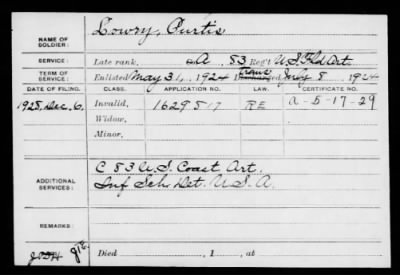 NAME OF SOLDIER: Lowry, Curtis
SERVICE: Late rank, A 83 Reg't U.S. Fld Art.
TERM OF SERVICE: Enlisted May 31, 1924 Trans July 8, 1924
DATE OF FILING. CLASS. APPLICATION NO. LAW. CERTIFICATE NO.
1928, Dec. 6. Invalid, 1629817 RE a-5-17-29
Widow,
Minor,
ADDITIONAL SERVICES: C 83 U.S. Coast Art.
Inf Sch. Det. U.S.A.
REMARKS:
Died , 1 , at